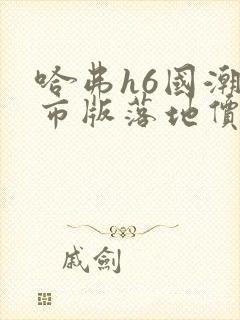 哈弗h6國潮
市版落地價
戚劍